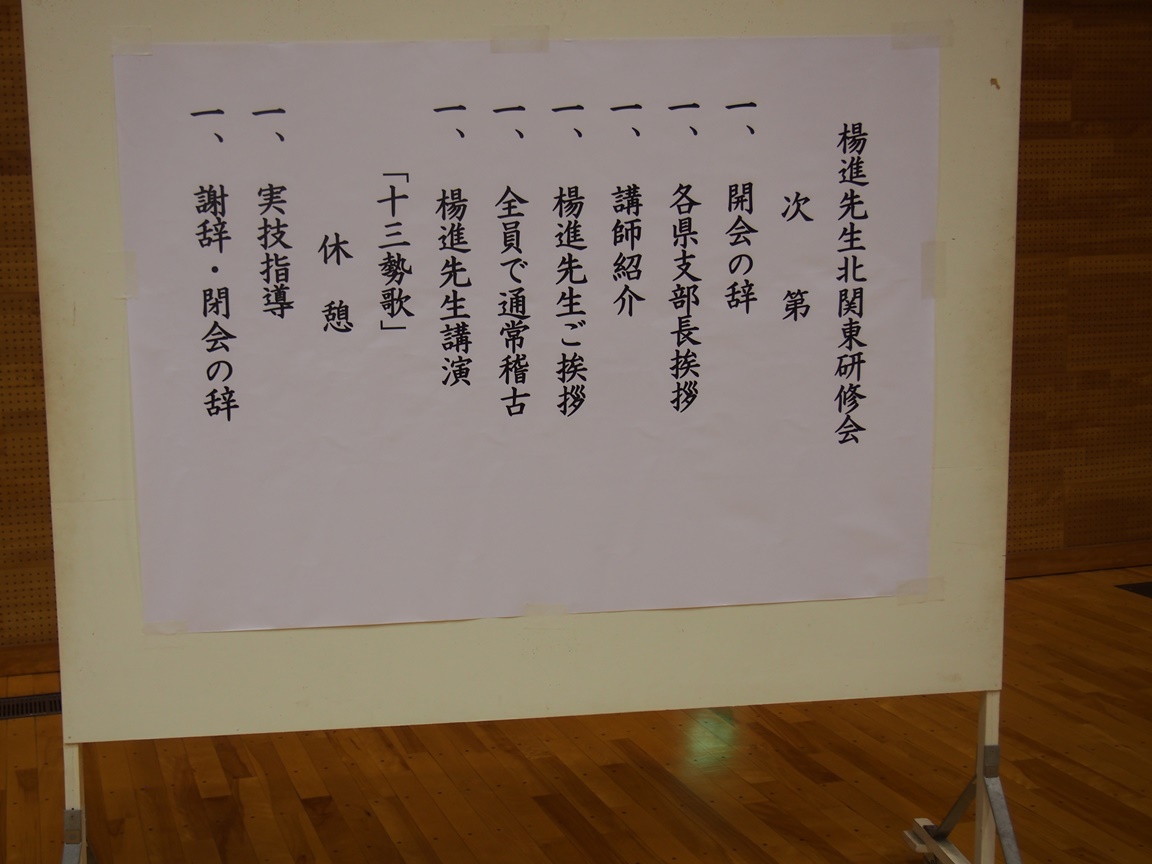 楊進先生北関東研修会
次　第
一、　開会の辞
一、　各県支部長挨拶
一、　講師紹介
一、　楊進先生ご挨拶
一、　全員で通常稽古
一、　楊進先生講演
「十三勢歌」
休　憩
一、　実技指導
一、　謝辞・閉会の辞